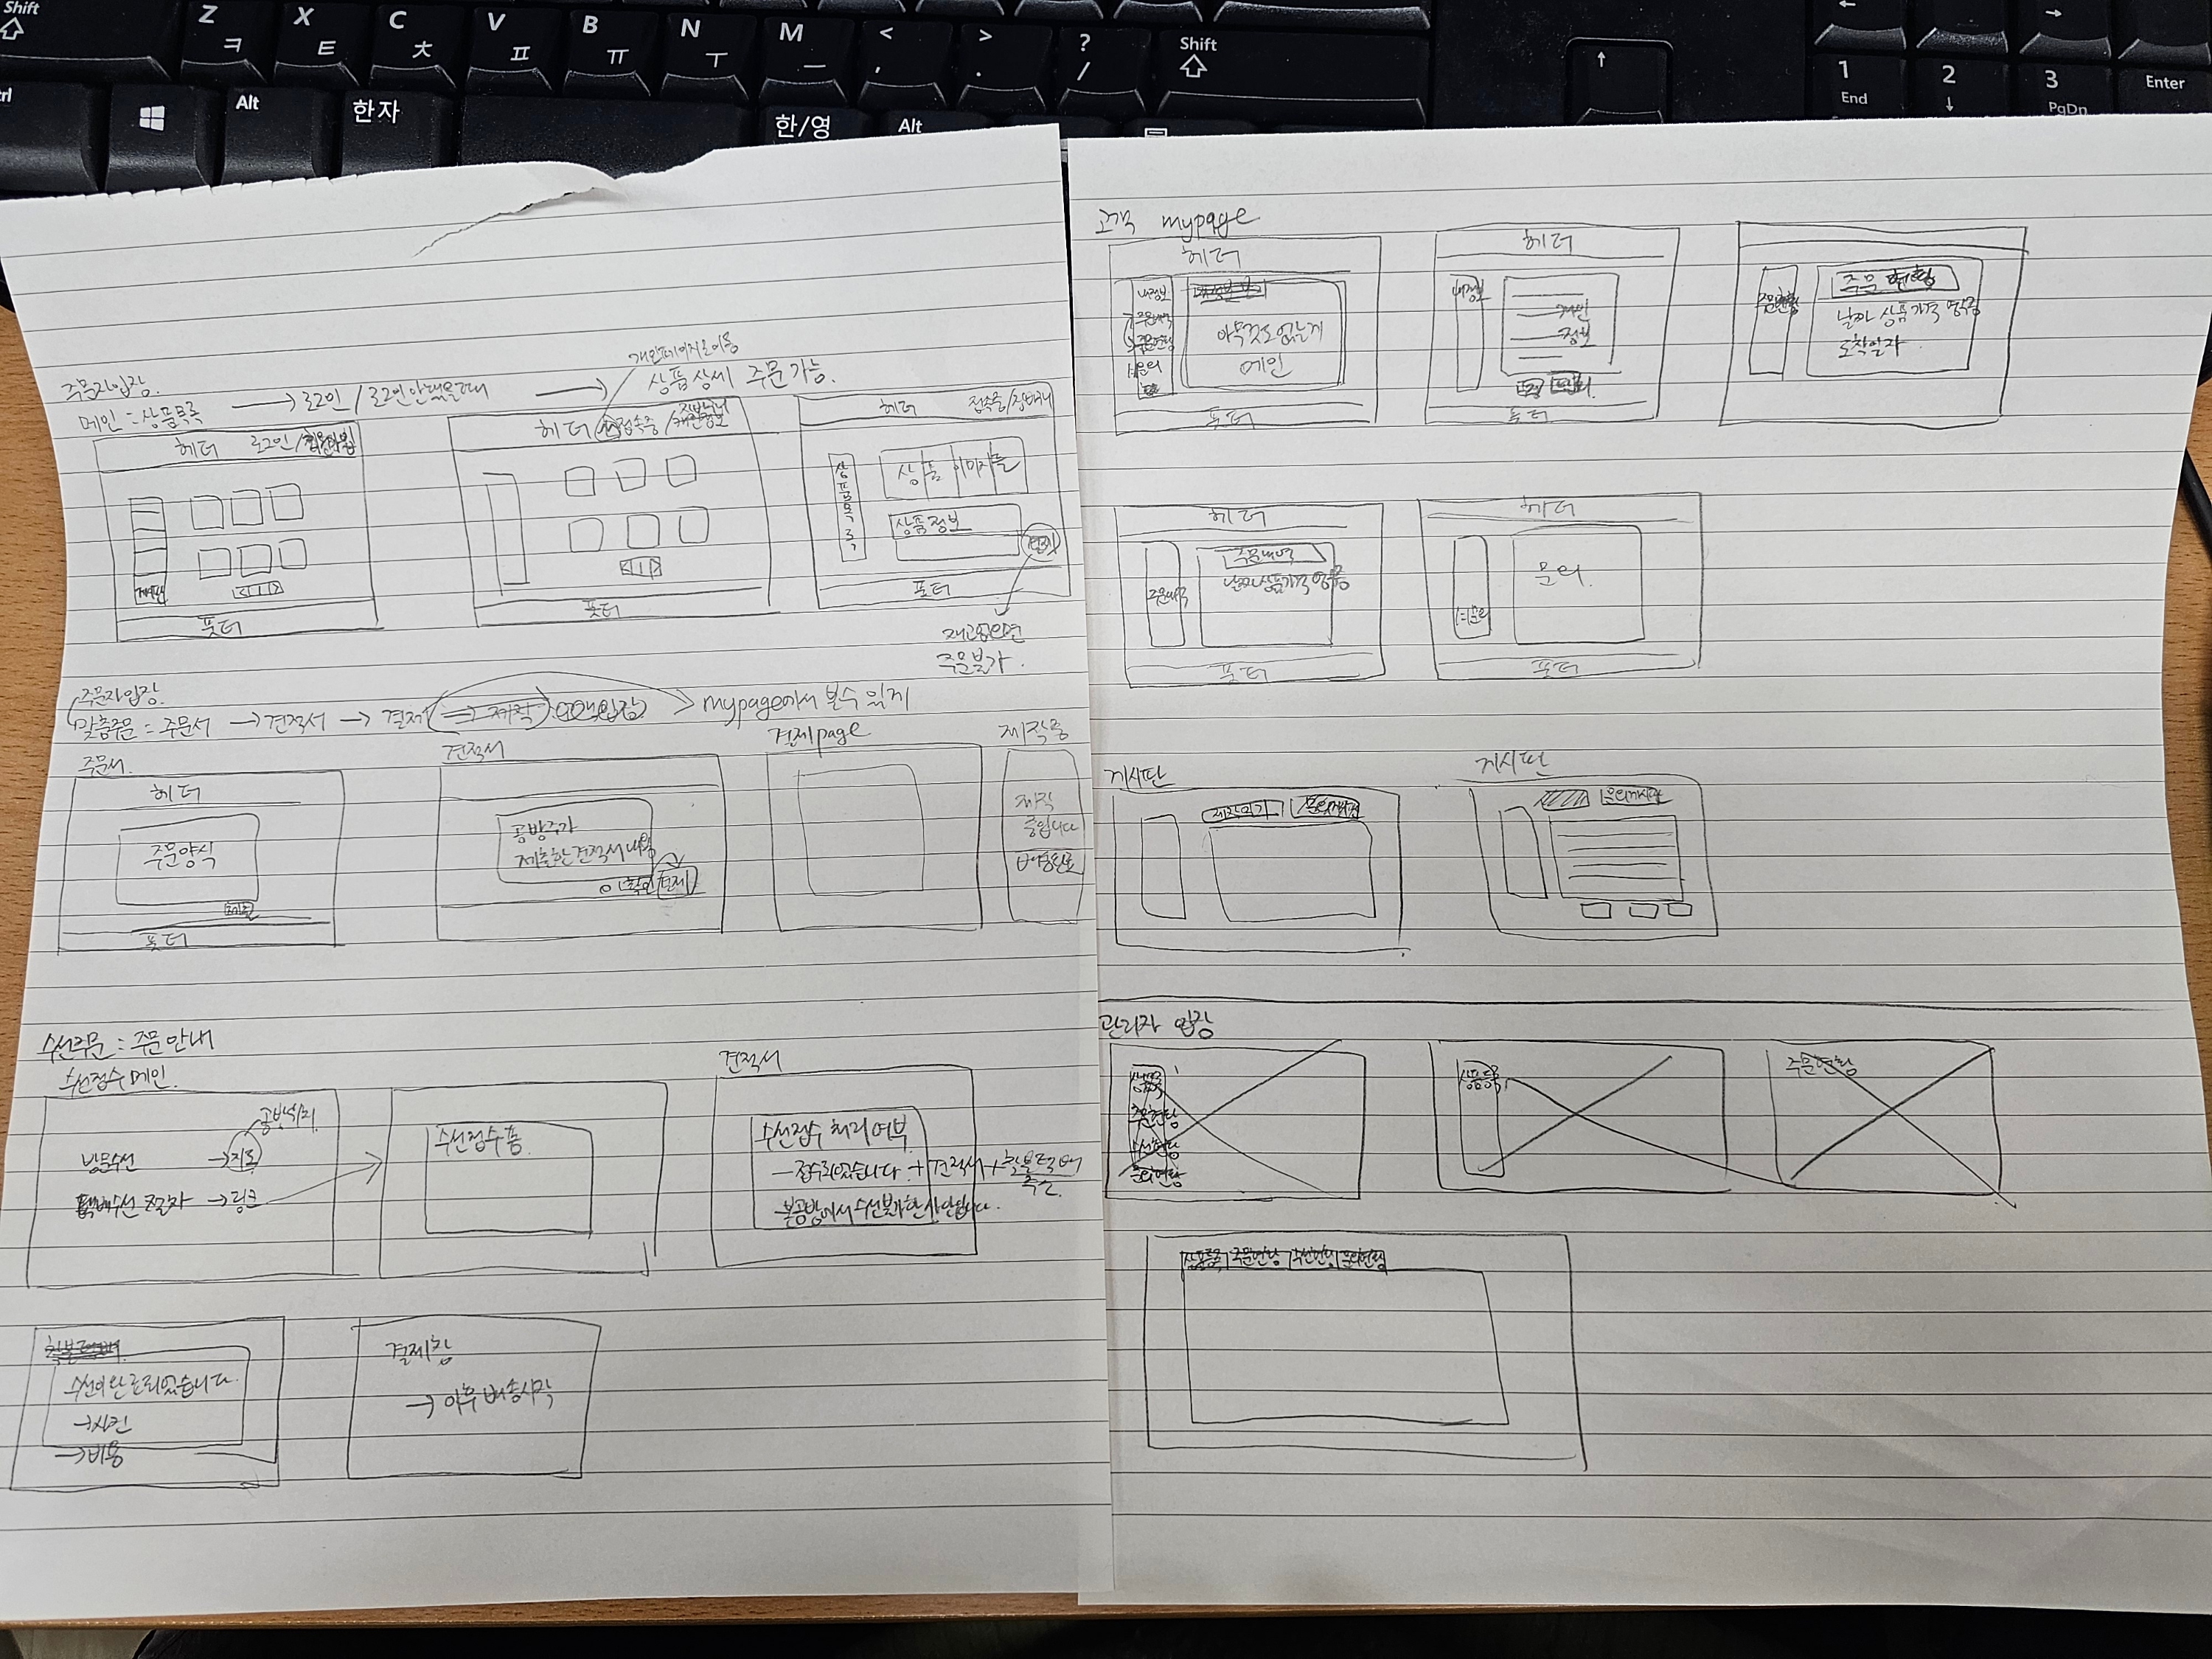 Shift
Z ㅋ
X ㅌ
C ㅊ
V ㅍ
B ㅠ
N ㅜ
M ㅡ
< ,
> .
? /
Shift
↑
1 End
2 ↓
3 PgDn
Enter
Alt
한자
한/영
Alt
주문자입장.
메인 = 상품목록 → 로그인 / 로그인안됐을때 → 상품상세 주문가능.
개인페이지로이동
헤더 로그인/
게시판
푸터
헤더 접속중/
푸터
헤더 접속중/장바구니
상품목록
상품 이미지들
상품정보
푸터
재고없으면
주문불가.
주문자입장.
맞춤주문 = 주문서 → 견적서 → 결제 (→ 제작) mypage에서 볼수 있게
주문서.
헤더
주문양식
제출
푸터
견적서
공방주가
제출한 견적서 내용
확인 결제
결제page
제작중
제작
중입니다
배송완료
수선주문 = 주문안내
수선접수메인.
방문수선 → 지도
공방위치.
택배수선 → 링크
수선접수폼.
견적서
수선접수 처리여부
- 접수되었습니다. + 견적서 + 착불택배
주소.
본공방에서 수선불가한 사안입니다.
수선이완료되었습니다.
→ 사진
→ 비용
결제창
→ 이후 배송시작
고객 mypage
헤더
내정보
주문내역
주문현황
1:1문의
아무것도없는게
메인
푸터
헤더
내정보
개인
정보
푸터
주문현황
주문 현황
날짜 상품 가격 명
도착일자.
헤더
주문내역
주문내역
날짜 상품 가격
푸터
헤더
1:1문의
문의.
푸터
게시판
제작의기
문의게시판
게시판
문의게시판
관리자 입장
상품목록
주문현황
수선현황
문의현황
상품등록
주문현황
상품등록 주문현황 수선현황 문의현황